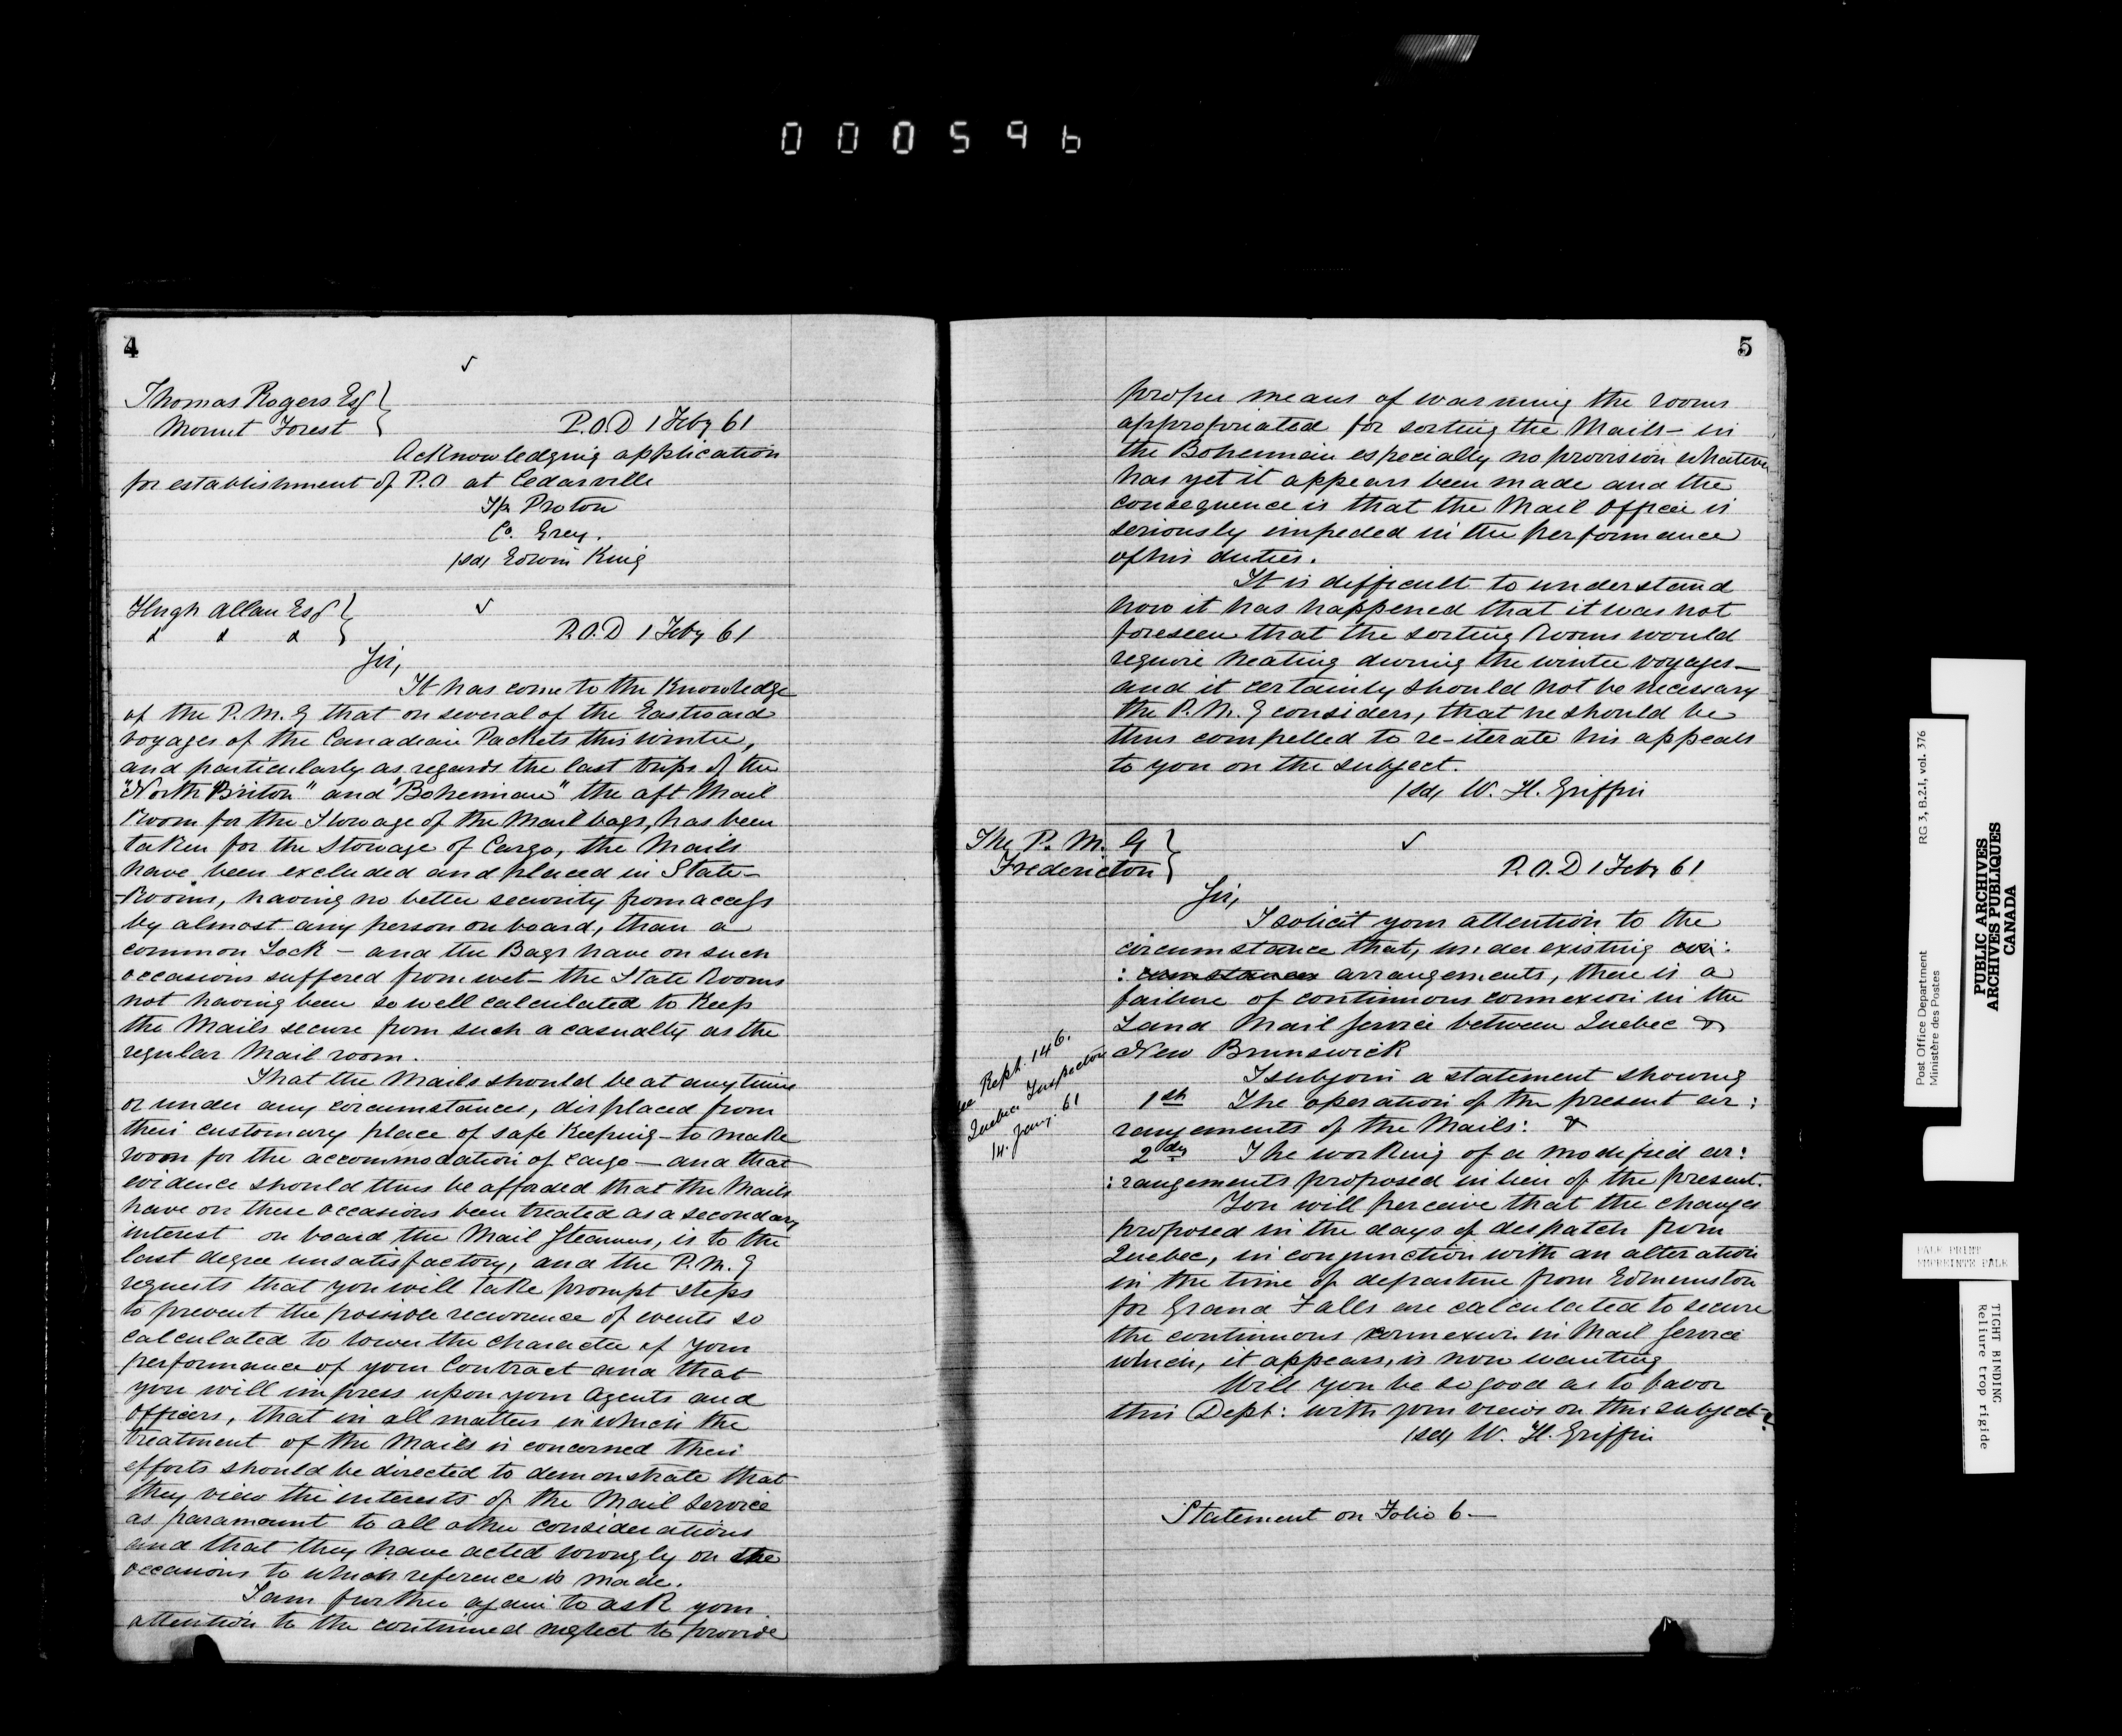 000596
4
Thomas Rogers Esq
Mount Forest
P.O.D 1 Feby 61
Acknowledging application
for establishment of P.O at Cedarville
T/p Proton
Co. Grey.
/sd/ Edwin King
Hugh Allan Esq
P.O.D 1 Feby 61
Sir,
It has come to the Knowledge
of the P.M.G that on several of the Eastward
voyages of the Canadian Packets this winter,
and particularly as regards the last trips of the
"North Briton" and "Bohemian" the aft Mail
Room for the Stowage of the Mail bags, has been
taken for the Stowage of Cargo, the Mails
have been excluded and placed in State-
-Rooms, having no better security from access
by almost any person on board, than a
common Lock - and the Bags have on such
occasions suffered from wet - the State Rooms
not having been so well calculated to Keep
the Mails secure from such a casualty as the
regular Mail room.
That the Mails should be at any time
or under any circumstances, displaced from
their customary place of safe Keeping - to make
room for the accommodation of cargo - and that
evidence should thus be afforded that the Mails
have on these occasions been treated as a secondary
interest on board the Mail Steamers, is to the
last degree unsatisfactory, and the P.M.G
requests that you will take prompt steps
to prevent the possible recurrence of events so
calculated to lower the character of your
performance of your Contract and that
you will impress upon your Agents and
Officers, that in all matters in which the
treatment of the Mails is concerned their
efforts should be directed to demonstrate that
they view the interests of the Mail Service
as paramount to all other considerations
and that they have acted wrongly on the
occasions to which reference is made.
I am further again to ask your
attention to the continued neglect to provide
5
proper means of warming the rooms
appropriated for sorting the Mails - in
the Bohemian especially no provision whatever
has yet it appears been made and the
consequence is that the Mail Officer is
seriously impeded in the performance
of his duties.
It is difficult to understand
how it has happened that it was not
foreseen that the sorting Rooms would
require heating during the winter voyages -
and it certainly should not be necessary
the P.M.G considers, that he should be
thus compelled to re-iterate his appeals
to you on the subject.
/sd/ W. H. Griffin
The P. M. G
Fredericton
P.O.D 1 Feby 61
Sir,
I solicit your attention to the
circumstance that, under existing cir:
: cumstances arrangements, there is a
failure of continuous connexion in the
Land Mail Service between Quebec &
New Brunswick
see Rept. 146.
Quebec Inspector
14. Jany. 61
I subjoin a statement showing
1st The operation of the present ar:
rangements of the Mails: &
2dly The working of a modified ar:
:rangements proposed in lieu of the present.
You will perceive that the changes
proposed in the days of despatch from
Quebec, in conjunction with an alteration
in the time of departure from Edmunston
for Grand Falls are calculated to secure
the continuous connexion in Mail Service
which, it appears, is now wanting
Will you be so good as to favor
this Dept: with your views on this subject?
/sd/ W. H. Griffin
Statement on Folio 6 -
Post Office Department
Ministère des Postes
RG 3, B.2.1, vol. 376
PUBLIC ARCHIVES
ARCHIVES PUBLIQUES
CANADA
PALE PRINT
EMPREINTE PALE
TIGHT BINDING
Reliure trop rigide